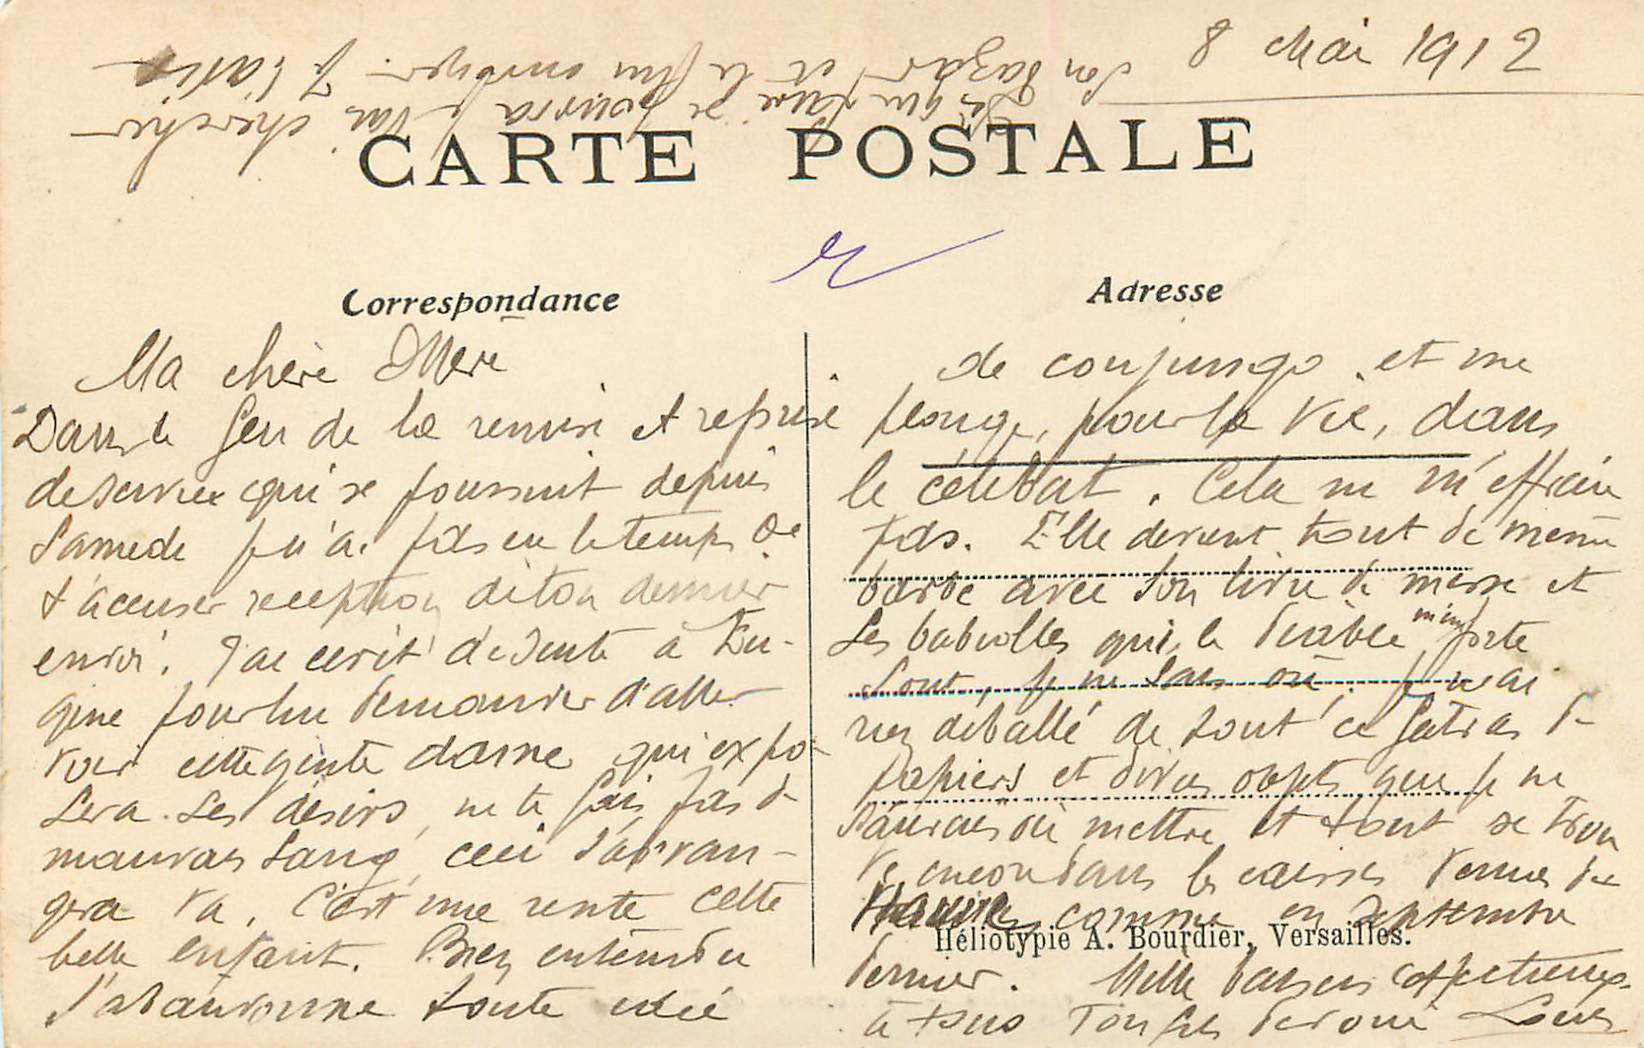 8 Mai 1912
CARTE POSTALE
Correspondance
Adresse
Ma chère Mère
Dans le feu de la remise et reprise
de service qui se poursuit depuis
Samedi je n'ai pas eu le temps de
t'accuser reception de ton dernier
envoi. J'ai écrit de suite à Eu-
gène pour lui demander d'aller
voir cette gente dame qui expo-
sera ses désirs, ne te fais pas de
mauvais sang, ceci s'arran-
gera va. C'est une rente cette
belle enfant. Bien entendu
j'abandonne toute idée
de conjungo et me
plonge, pour la vie, dans
le célibat. Cela ne m'effraie
pas. Elle devient tout de même
barbe avec son livre de messe et
ses babiolles qui, le diable m'emporte
sont, je ne sais où. Je n'ai
rien déballé de tout ce fatras de
papiers et divers objets que je ne
saurais où mettre et tout se trou
ve encore dans les caisses venues de
comme en Septembre
Héliotypie A. Bourdier, Versailles.
dernier. Mille baisers affectueux
à tous Ton fils dévoué Louis
son bazar et le lui envoyer. Je l'avise
qu'elle pourra le venir chercher